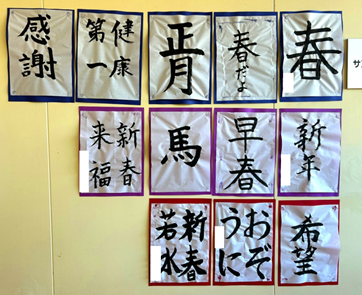 春
春だよ
正月
健康
第一
感謝
新年
早春
馬
新春
来福
希望
おぞ
うに
新春
若水
サ